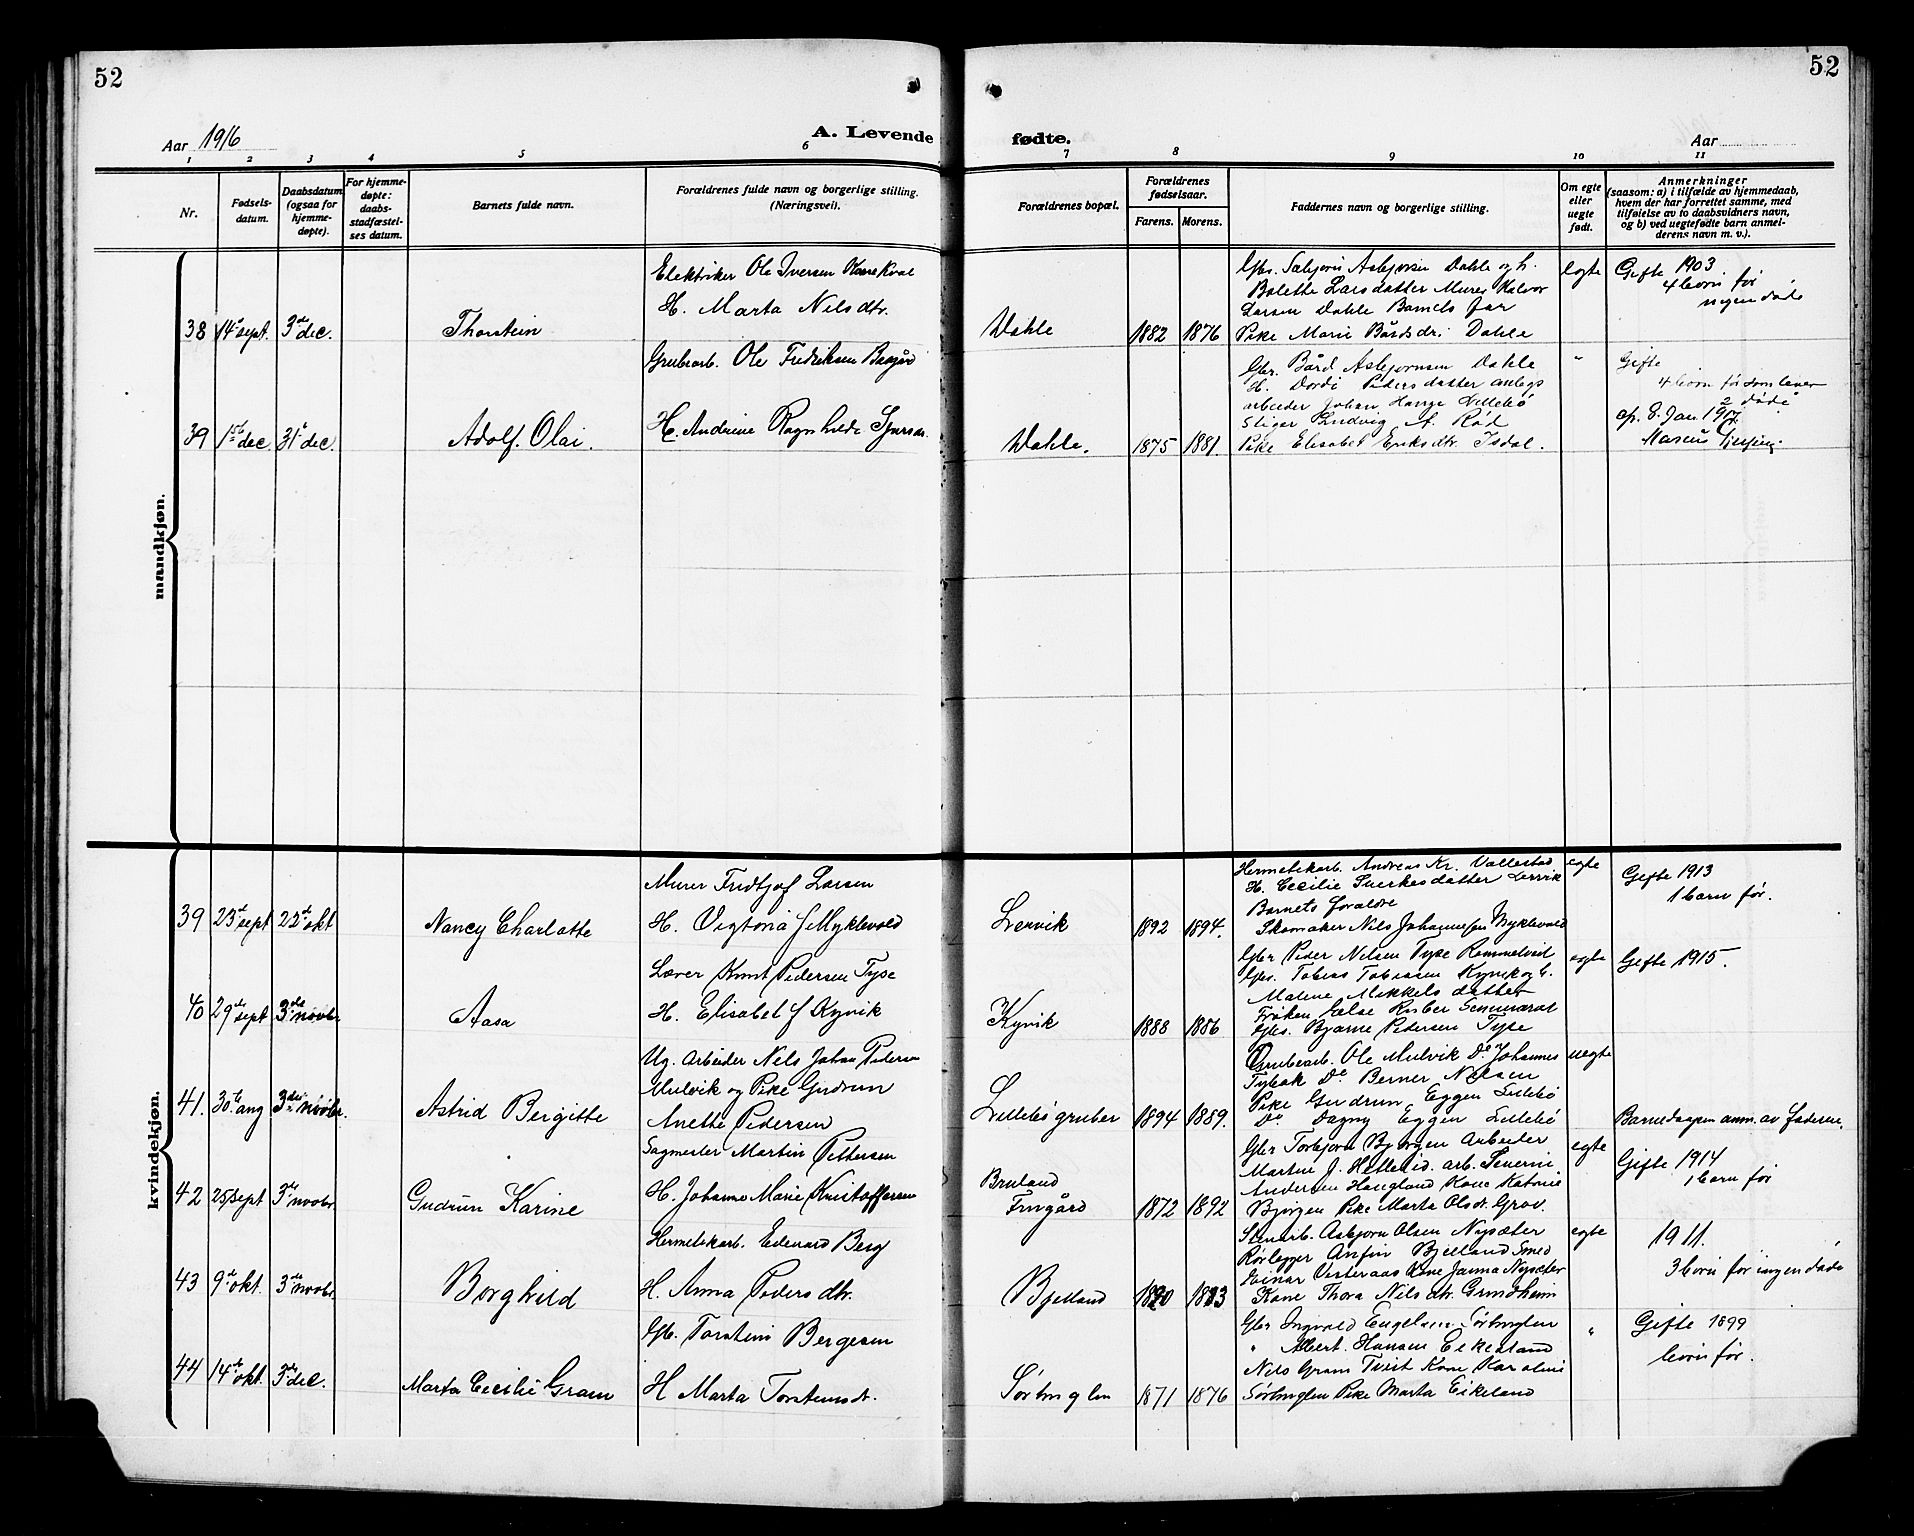 52
52
Aar 1916
A. Levende
fødte.
Aar
1 2 3 4 5 6 7 8 9 10 11
Nr.
Fødsels-
datum.
Daabsdatum
(ogsaa for
hjemme-
døpte).
For hjemme-
døpte:
daabs-
stadfæstel-
ses datum.
Barnets fulde navn.
Forældrenes fulde navn og borgerlige stilling.
(Næringsvei).
Forældrenes bopæl.
Forældrenes
fødselsaar.
Farens. Morens.
Faddernes navn og borgerlige stilling.
Om egte
eller
uegte
født.
Anmerkninger
(saasom: a) i tilfælde av hjemmedaab,
hvem der har forrettet samme, med
tilføielse av to daabsvidners navn,
og b) ved uegtefødte barn anmel-
derens navn m. v.).
mandkjøn.
38 14de sept. 3de dec.
Thorstein
Elektriker Ole Iversen
H. Marta Nilsdtr.
Dahle
1882 1876
Gbr. Asbjørnsen Dahle og h.
Bolette Larsdatter Murer Halvor
Larsen Dahle Barnets far
Pike Marie Bårdsdr. Dahle
Egte
Gifte 1903
4 børn før
ingen døde
39 1ste dec. 31te dec.
Adolf. Olai.
Grubearb. Ole Fredriksen
H. Andrine Ragnhilde
Dahle.
1875 1881.
Gbr. Bård Asbjørnsen Dahle
H. Dordi Pedersdatter anlegs
arbeider Johan Hauge Lillebø
Stiger Ludvig A. Rød
Pike Elisabet Eriksdtr. Isdal.
"
Gifte
4 børn før som lever
2 døde
8. Jan. 1917
kvindekjøn.
39 23de sept 22de okt
Nancy Charlotte
Murer Fridtjof Larsen
H. Vigtoria f Myklevold
Lervik
1892 1894.
Hermetikarb. Andreas Kr. Vallestad
H. Cecilie Sverkesdatter Lervik
Barnets foraldre
Skomaker Nils Johannesen Myklevold
egte
Gifte 1913
1 barn før.
40 29de sept 3de novbr
Aasa
Lærer Knut Pedersen Tyse
H. Elisabet f Kyvik
Kyvik
1888 1886
Gbr Peder Nilsen Tyse Rommetveit
Gbr. Tobias Tobiassen Kyvik og h.
Malene Mikkelsdatter
Frøken Helse
Gbr. Bjarne Pedersen Tyse
egte
Gifte 1915.
41. 30te aug 3die novbr.
Astrid Bergitte
Ug. Arbeider Nils Johan Pedersen
Mulvik og Pike Gudrun
Anethe Pedersen
Lillebø gruber
1894 1889.
Grubearb. Ole Mulvik Do Johannes
Do Berner Nilsen
Pike Gudrun Eggen Lillebø
Do Dagny Eggen Lillebø
uegte
Barnedaapen anm. av faderen.
42 25/sept 3de novbr.
Gudrun Karine
Sagmester Martin Pettersen
H. Johanne Marie Kristoffersen
Bruland
Fringård
1872 1892
Gbr Torbjørn Bjørgen Arbeider
Martin J. Helleland. arb. Severin
Andersen Haugland Kone Katrine
Bjørgen Pike Marta Olsdt. Grov.
egte
Gifte 1914
1 barn før
43 9de okt. 3de novbr.
Borghild
Hermetikarb. Edvard Berg
H. Anna Pedersdtr.
Bjelland
Stenarb. Asbjørn Olsen Nysæter
Rørlegger Anfin Bjelland Smed
Einar Vesteraas Kone Janna Nysæter
Kone Thora Nilsdtr. Grindheim
egte
1911.
3 børn før ingen døde
44 14de okt. 3de dec.
Marta Cecilie Gram
Gb. Torstein Bergesen
H Marta Torsteinsdt.
Sørhuglen
1871 1876
Gbr Ingvald Engelsen Sørhuglen
" Albert. Hansen Eikeland
Nils Gram Tveit Kone Karoline
Sørhuglen Pike Marta Eikeland
"
Gifte 1899
børn før.